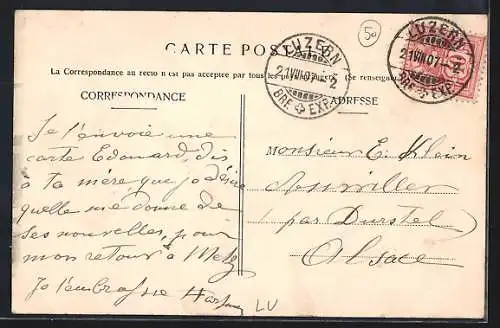 50
CARTE POSTALE
La Correspondance au recto n'est pas acceptée par tous les (Se renseigner
CORRESPONDANCE
ADRESSE
LUZERN
21.VIII.07.-2
BRF. EXP.
LUZERN
21.VIII.07.-2
BRF. EXP.
Je t'envoie une
carte Edouard, dis
à ta mère que je désire
qu'elle me donne de
ses nouvelles, pour
mon retour à Metz
Je t'embrasse
Monsieur E. Klein
(par Durstel)
Alsace
LV